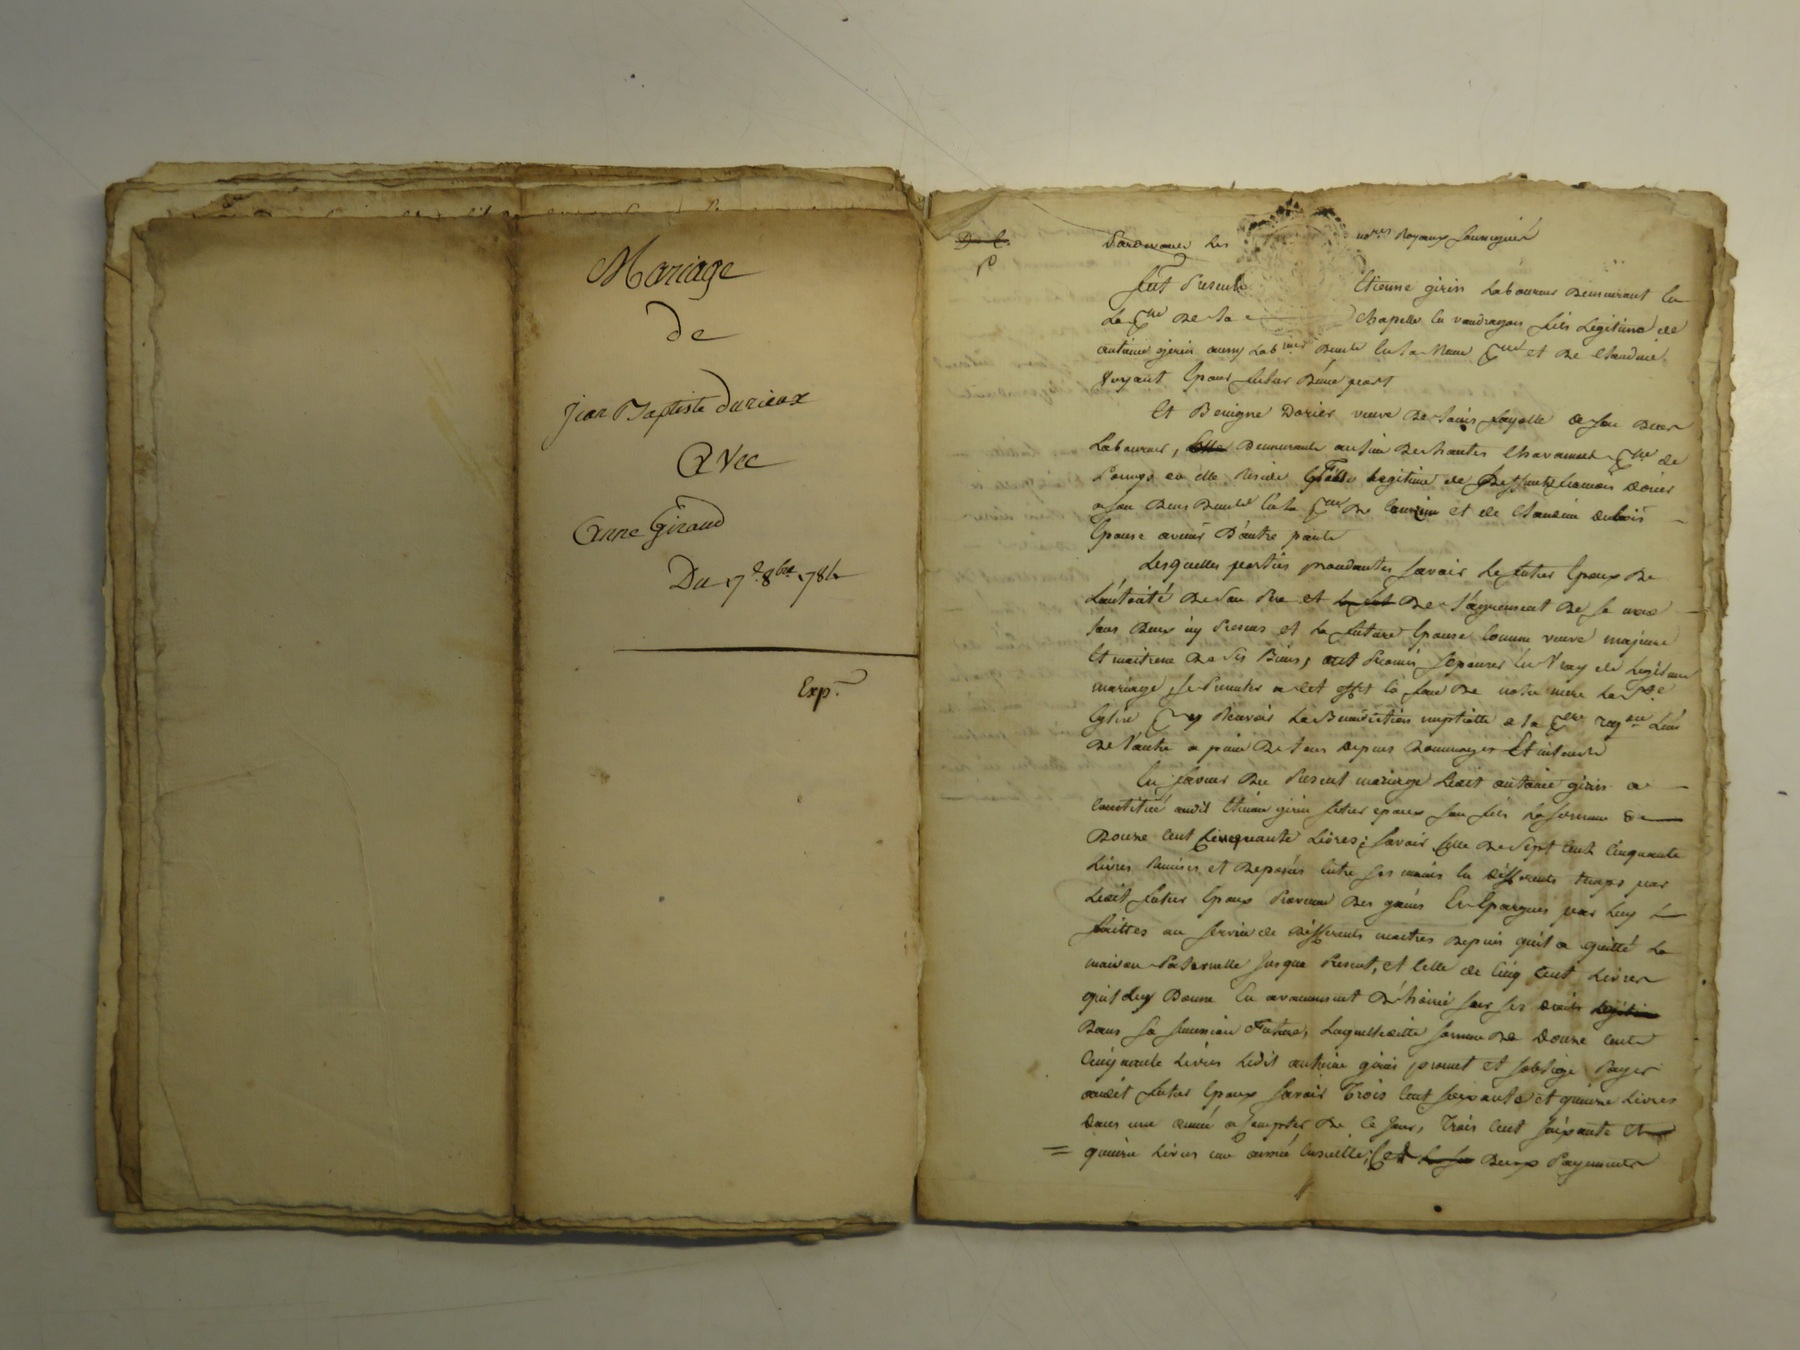 Mariage
de
Jean Baptiste durieux
Avec
Anne Giraud
Du 7e 8bre 1784
Exp.
Pardevant les nores Royaux soussignés
fut Present Etienne girin Laboureur Demeurant en
La Psse De la chapelle en vaudragon fils Legitime de
antoine girin aussy Lab Demt En la meme Psse et De Claudine
Epoux futur D'une part
Et Benigne Dorier veuve De Louis fayolle De son vivant
Laboureur, Demeurante au lieu De hautes Psse de
ou elle Reside fille Legitime de Dorier
a son vivant en la Psse De et de Claudine dubois
Epouse avenir D'autre parte
Lesquelles parties procedantes savoir Le futur Epoux De
L'autorité De son Pere et De L'agrement De sa mere
tous Deux icy Presens et La future Epouse Comme veuve majeure
Et maitresse De Ses Biens, ont Promis s'epouser En Vray et Legitime
mariage, se Presenter a cet effet la face De notre mere La Ste
Eglise Py Recevoir La Benediction nuptialle a la Pre Lun
De L'autre a peine De tous Depens Dommages Et interets
En faveur Du Present mariage Ledit antoine girin a
Constitué audit Etienne girin futur epoux son fils La somme de
Douze Cent Cinquante Livres; savoir celle De Sept Cent Cinquante
Livres Remises et Deposées Entre ses mains En differents temps par
Ledit futur Epoux Provenue Des gains Et Epargnes par Luy
faittes au service de Differents maitres Depuis qu'il a quitté La
maison Paternelle Jusqua Present, et Celle de Cinq Cent Livres
qu'il luy Donne En avancement D'hoirie sur ses droits
Dans sa succession Future, Laquelle ditte somme De Douze Cent
Cinquante Livres Ledit antoine girin promet et s'oblige Payer
audit futur Epoux savoir Trois Cent soixante et quinze Livres
dans une année a Compter De Ce Jour, Trois Cent soixante et
quinze Livres une année Ensuitte, Deux Payements